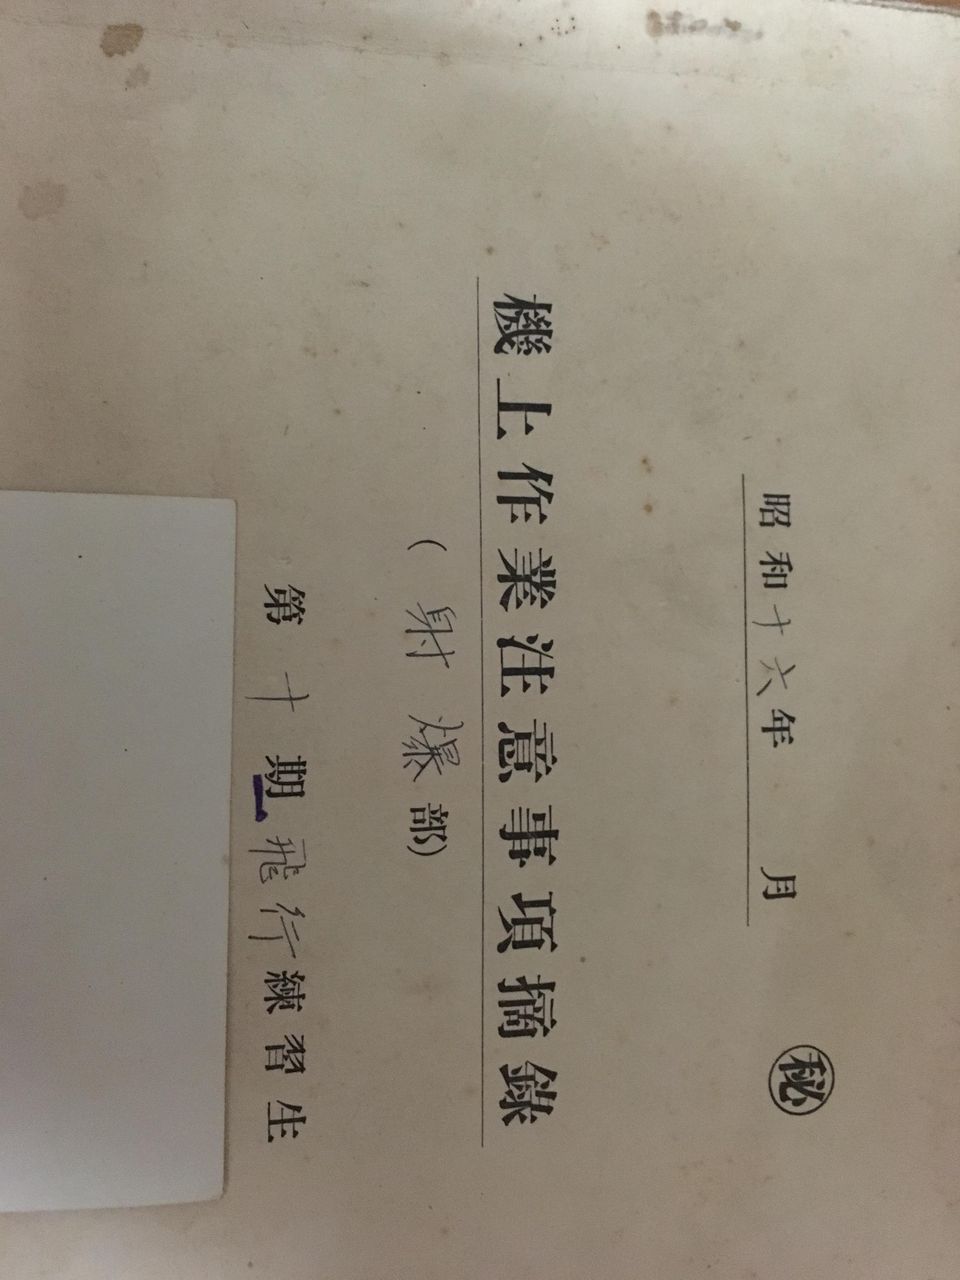 ㊙
昭和十六年 月
機上作業注意事項摘錄
(射爆部)
第十期飛行練習生